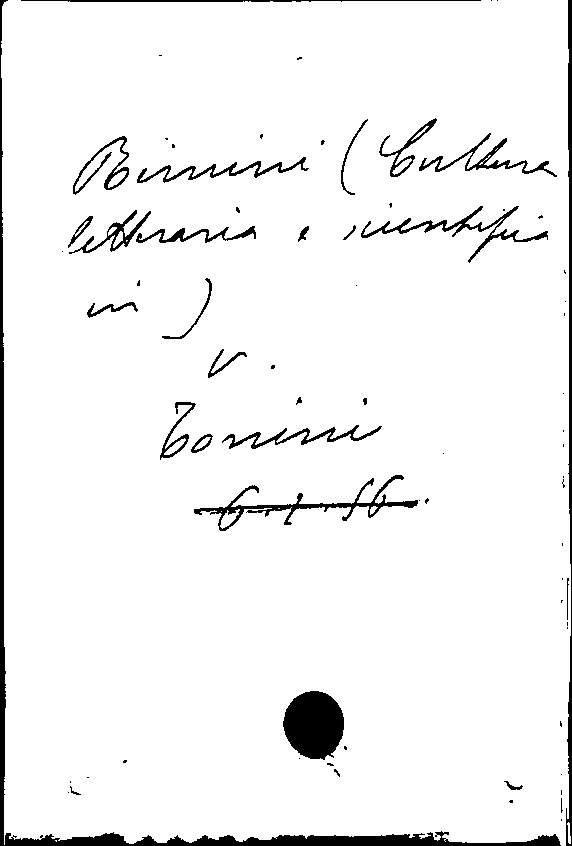 Rimini (Cultura
letteraria e scientifica
in)
v.
Tonini
6.1.56.